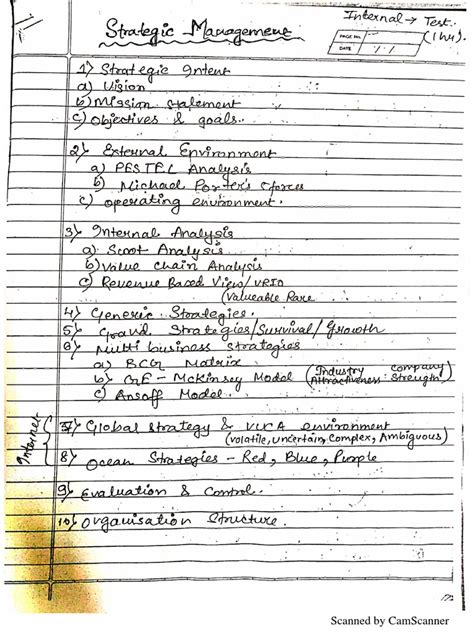 Internal → Test.
Strategic Management
(1 hr)
PAGE NO.
DATE / /
1) Strategic Intent
a) Vision
b) Mission statement
c) Objectives & goals.
2) External Environment
a) PESTEL Analysis
b) Michael Porter's 5 forces
c) operating environment.
3) Internal Analysis
a) Scoot Analysis
b) Value Chain Analysis
c) Revenue Based View/VRIO
(Valueable Rare
4) Generic Strategies.
5) Grand Strategies/Survival/Growth
6) Multi business strategies
a) BCG Matrix
b) GE - McKinsey Model (Industry Attractiveness company Strength)
c) Ansoff Model.
Internet
7) Global strategy & VUCA environment
(volatile, uncertain, complex, Ambiguous)
8) Ocean Strategies - Red, Blue, Purple
9) Evaluation & Control.
10) Organisation Structure.
Scanned by CamScanner